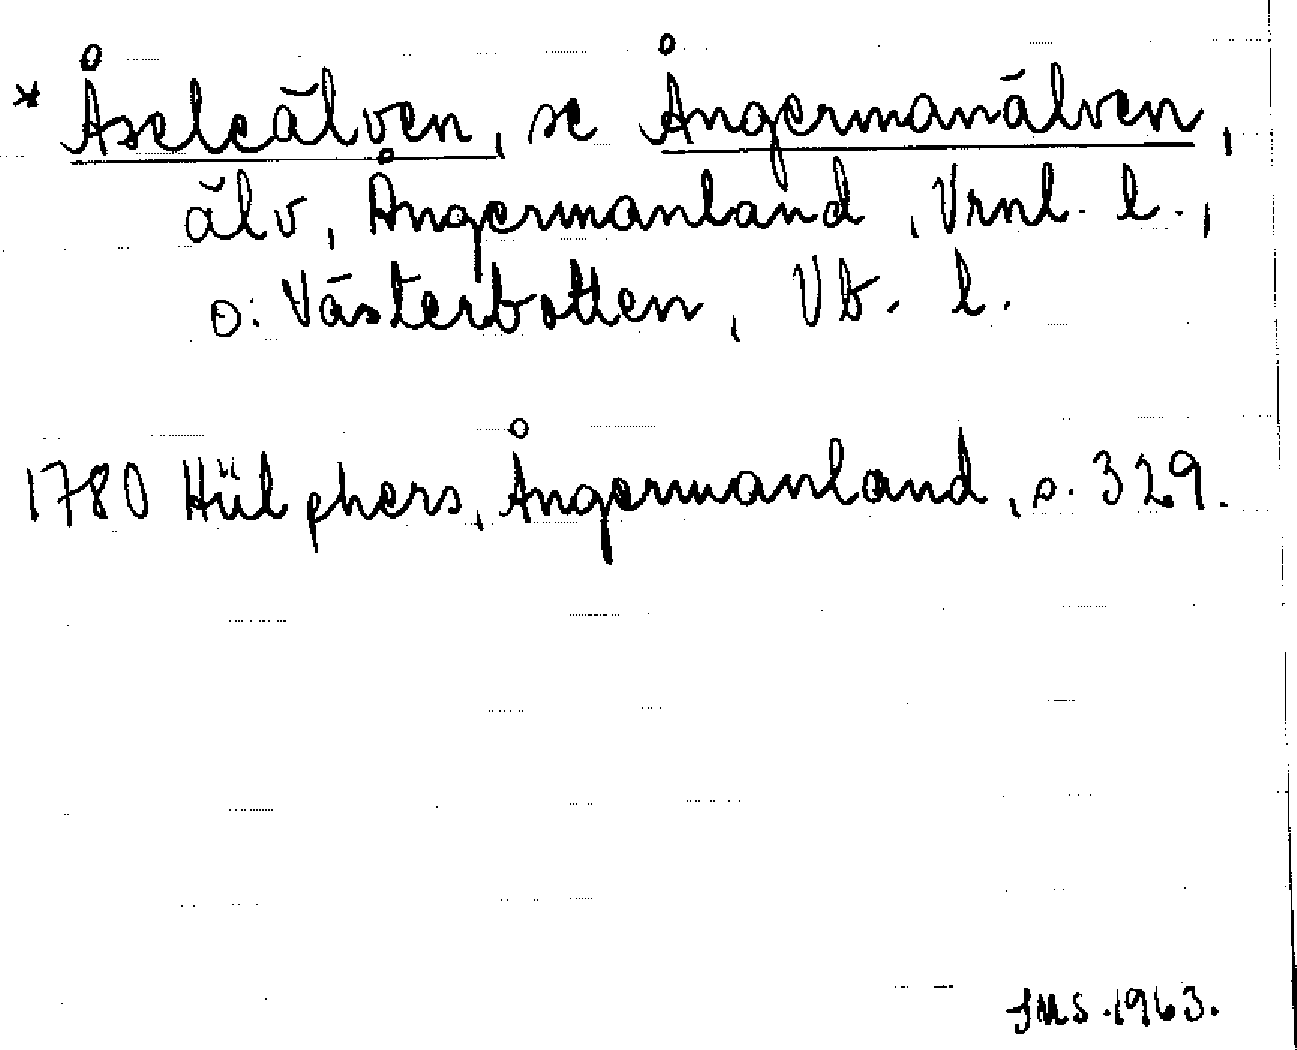 * Åseleälven, se Ångermanälven,
älv, Ångermanland, Vrnl. l.,
o. Västerbotten, Vb. l.
1780 Hülphers, Ångermanland, s. 329.
SMS. 1963.